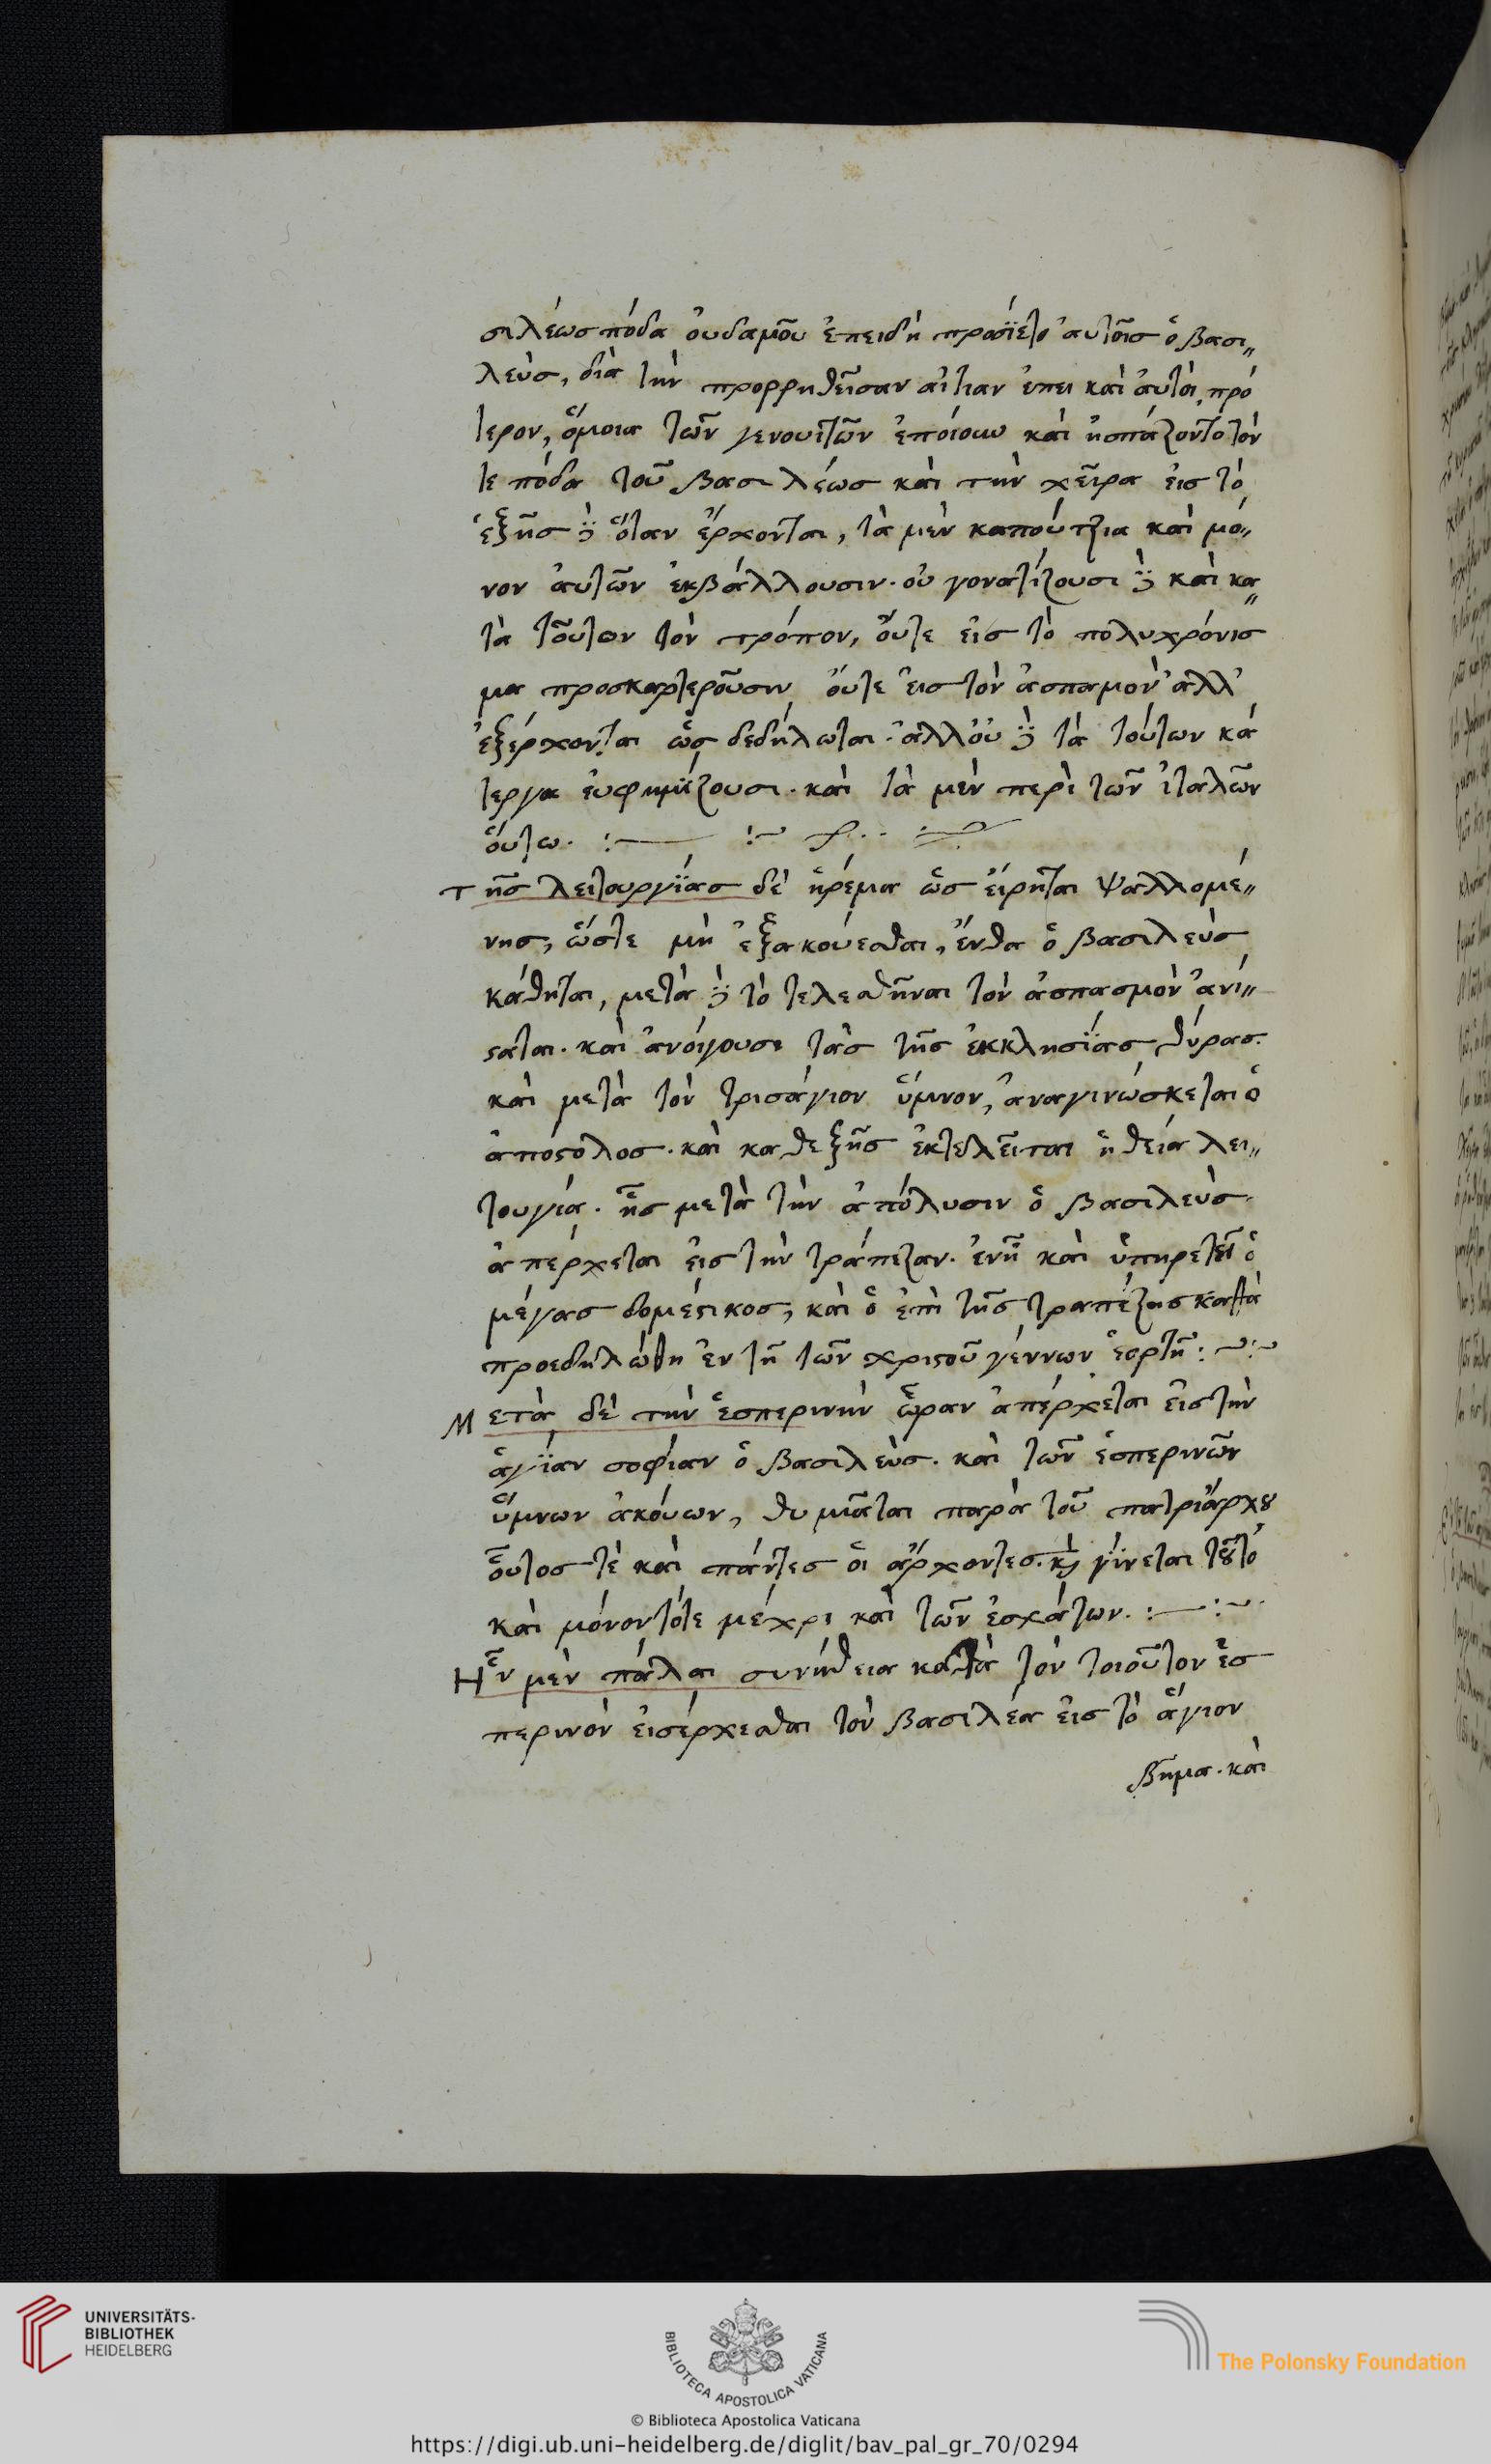 σιλέως πόδα ὀυδαμοῦ ἐπειδὴ προσΐετο ἀυτοῖς ὁ βασι„
λεὺς, διὰ τὴν προρρηθεῖσαν αἰτιαν ἐπει καὶ ἀυτοὶ πρό
τερον, ὅμοια τῶν γενουϊτῶν ἐποίουν καὶ ἠσπάζοντο τόν
τε πόδα τοῦ βασιλέως καὶ τὴν χεῖρα εἰς τὸ
ἑξῆς δὲ ὅταν ἔρχονται, τὰ μὲν καπούτζια καὶ μό„
νον ἀυτῶν ἐκβάλλουσιν. οὐ γονατίζουσι δὲ καὶ κα„
τὰ τοῦτον τὸν τρόπον, οὔτε εἰς τὸ πολυχρόνισ
μα προσκαρτεροῦσιν ὄυτε ἐις τὸν ἀσπαμὸν ἀλλ᾽
ἐξέρχονται ὡς δεδήλωται. ἀλλ᾽ὀυ δὲ τὰ τούτων κά
τεργα ἐυφημίζουσι. καὶ τὰ μὲν περὶ τῶν ἰταλῶν
ὅυτω. :— :~
τῆς λειτουργΐας δὲ ἠρέμα ὡς ἐίρηται ψαλλομέ„
νης, ὥστε μὴ ἐξακούεσθαι, ἔνθα ὁ βασιλεὺς
κάθηται, μετὰ δὲ τὸ τελεσθῆναι τὸν ἀσπασμὸν ἀνί„
σταται. καὶ ἀνοίγουσι τὰς τῆς ἐκκλησΐας θύρας.
καὶ μετὰ τὸν τρισάγιον ὕμνον, ἀναγινώσκεται ὁ
ἀπόστολος. καὶ καθεξῆς ἐκτελεῖται ἡ θεία λει„
τουγία. ἧς μετὰ τὴν ἀπόλυσιν ὁ βασιλεὺς
ἀπέρχεται εἰς τὴν τράπεζαν. ἐνῇ καὶ ὑπηρετεῖ ὁ
μέγας δομέστικος, καὶ ὁ ἐπὶ τῆς τραπέζης καθὰ
προεδηλώθη ἐν τῇ τῶν χριστοῦ γέννων ἑορτῇ : ~:~
Μετὰ δὲ τὴν ἑσπερινὴν ὥραν ἀπέρχεται εἰς τὴν
ἁγΐαν σοφίαν ὁ βασιλεὺς. καὶ τῶν ἑσπερινῶν
ὕμνων ἀκόυων, θυμιᾶται παρὰ τοῦ πατριάρχου
οὗτος τὲ καὶ πάντες ὁι ἄρχοντες. καὶ γίνεται τοῦτο
καὶ μόνον τότε μέχρι καὶ τῶν ἐσχάτων. :—:~
Ἦν μὲν πάλαι συνήθεια κατὰ τὸν τοιοῦτον ἑσ
περινὸν ἐισέρχεσθαι τὸν βασιλέα ἐις τὸ ἅγιον
βῆμα. καὶ
UNIVERSITÄTS-
BIBLIOTHEK
HEIDELBERG
BIBLIOTECA APOSTOLICA VATICANA
The Polonsky Foundation
© Biblioteca Apostolica Vaticana
https://digi.ub.uni-heidelberg.de/diglit/bav_pal_gr_70/0294